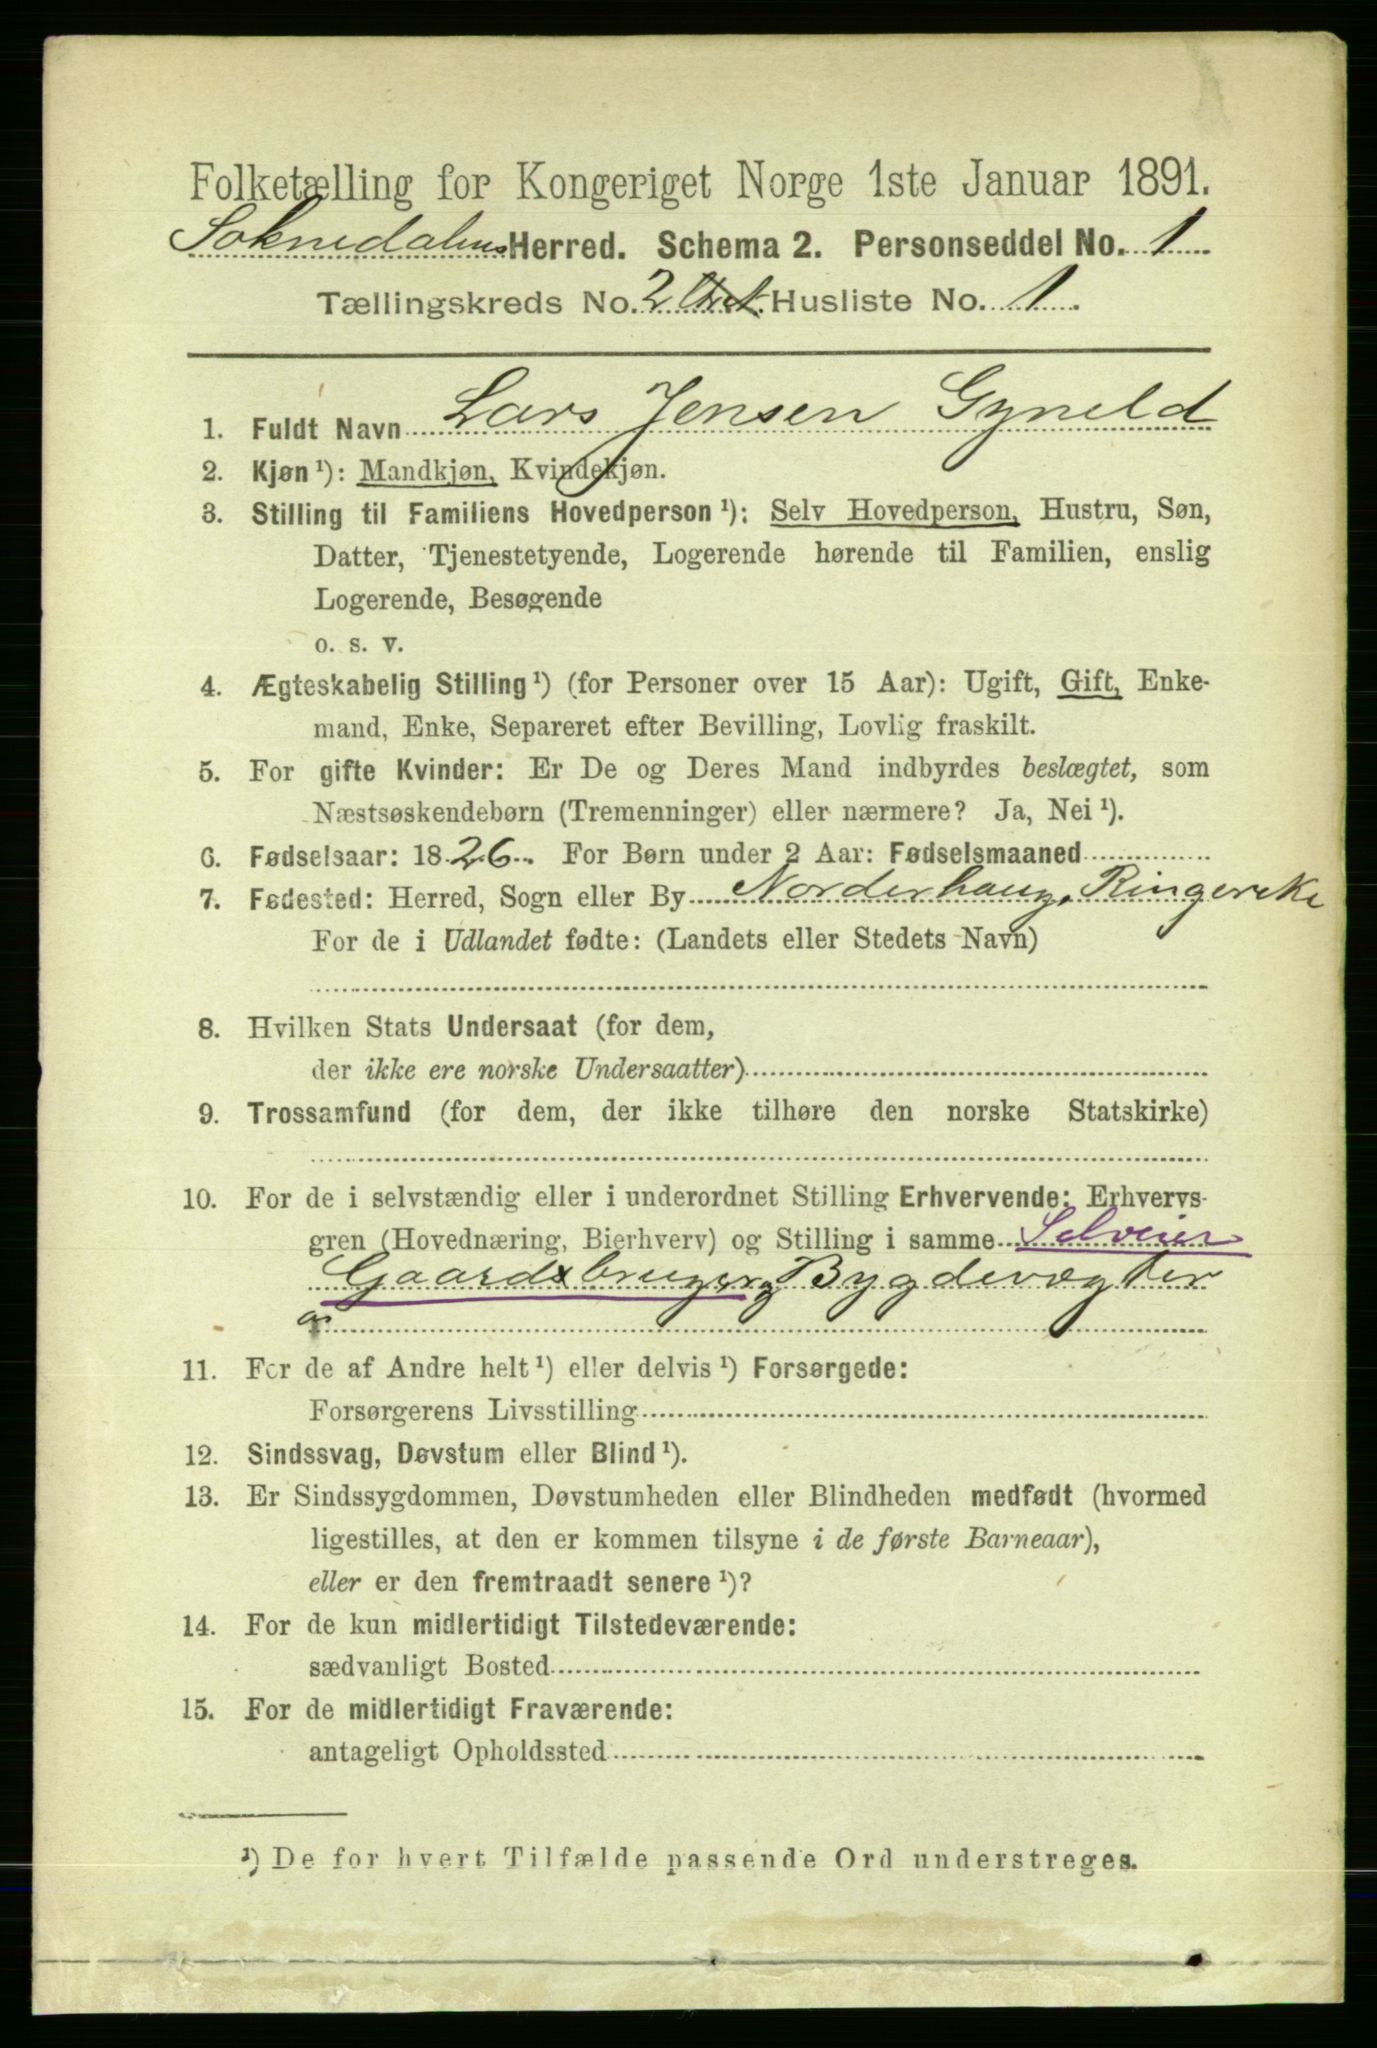 Folketælling for Kongeriget Norge 1ste Januar 1891.
Soknedalens Herred. Schema 2. Personseddel No. 1
Tællingskreds No. 2 Husliste No. 1.
1. Fuldt Navn Lars Jensen Gyneld
2. Kjøn ¹): Mandkjøn, Kvindekjøn.
3. Stilling til Familiens Hovedperson ¹): Selv Hovedperson, Hustru, Søn,
Datter, Tjenestetyende, Logerende hørende til Familien, enslig
Logerende, Besøgende
o. s. v.
4. Ægteskabelig Stilling ¹) (for Personer over 15 Aar): Ugift, Gift, Enke-
mand, Enke, Separeret efter Bevilling, Lovlig fraskilt.
5. For gifte Kvinder: Er De og Deres Mand indbyrdes beslægtet, som
Næstsøskendebørn (Tremenninger) eller nærmere? Ja, Nei ¹).
6. Fødselsaar: 1826. For Børn under 2 Aar: Fødselsmaaned
7. Fødested: Herred, Sogn eller By Norderhaug, Ringerike
For de i Udlandet fødte: (Landets eller Stedets Navn)
8. Hvilken Stats Undersaat (for dem,
der ikke ere norske Undersaatter)
9. Trossamfund (for dem, der ikke tilhøre den norske Statskirke)
10. For de i selvstændig eller i underordnet Stilling Erhvervende: Erhvervs-
gren (Hovednæring, Bierhverv) og Stilling i samme Selveier
Gaardsbruger, Bygdevægter
11. For de af Andre helt ¹) eller delvis ¹) Forsørgede:
Forsørgerens Livsstilling
12. Sindssvag, Døvstum eller Blind ¹).
13. Er Sindssygdommen, Døvstumheden eller Blindheden medfødt (hvormed
ligestilles, at den er kommen tilsyne i de første Barneaar),
eller er den fremtraadt senere ¹)?
14. For de kun midlertidigt Tilstedeværende:
sædvanligt Bosted
15. For de midlertidigt Fraværende:
antageligt Opholdssted
¹) De for hvert Tilfælde passende Ord understreges.